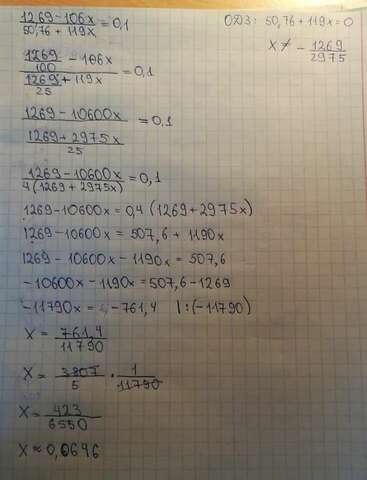 12,69-106x / 50,76+119x = 0,1
ОДЗ: 50,76+119x=0
x ≠ - 1269/2975
(1269/100 - 106x) / (1269/25 + 119x) = 0,1
(1269-10600x) / ((1269+2975x)/25) = 0,1
(1269-10600x) / (4(1269+2975x)) = 0,1
1269-10600x=0,4(1269+2975x)
1269-10600x=507,6+1190x
1269-10600x-1190x=507,6
-10600x-1190x=507,6-1269
-11790x= -761,4 |:(-11790)
x= 761,4/11790
x= 3807/5 · 1/11790
x= 423/6550
x≈0,0646